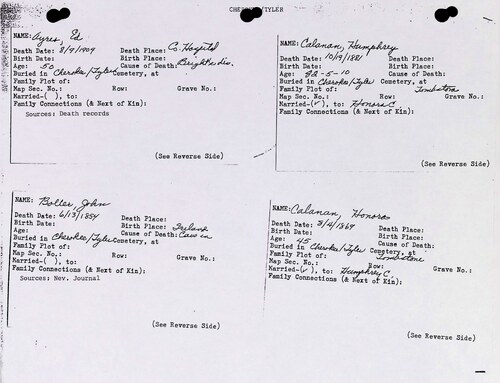 CHEROKEE/TYLER
NAME: Ayres, Ed
Death Date: 8/9/1904 Death Place: Co. Hospital
Birth Date: Birth Place:
Age: 50 Cause of Death: Bright's dis.
Buried in Cherokee/Tyler Cemetery, at
Family Plot of:
Map Sec. No.: Row: Grave No.:
Married-( ), to:
Family Connections (& Next of Kin):
Sources: Death records
(See Reverse Side)
NAME: Calanan, Humphrey
Death Date: 10/19/1881 Death Place:
Birth Date: Birth Place:
Age: 82-5-10 Cause of Death:
Buried in Cherokee/Tyler Cemetery, at
Family Plot of: Tombstone
Map Sec. No.: Row: Grave No.:
Married-(✓), to: Honora C.
Family Connections (& Next of Kin):
(See Reverse Side)
NAME: Boller, John
Death Date: 6/13/1854 Death Place:
Birth Date: Birth Place: Ireland
Age: Cause of Death: Cave in
Buried in Cherokee/Tyler Cemetery, at
Family Plot of:
Map Sec. No.: Row: Grave No.:
Married-( ), to:
Family Connections (& Next of Kin):
Sources: Nev. Journal
(See Reverse Side)
NAME: Calanan, Honora
Death Date: 3/4/1869 Death Place:
Birth Date: Birth Place:
Age: 45 Cause of Death:
Buried in Cherokee/Tyler Cemetery, at
Family Plot of: Tombstone
Map Sec. No.: Row: Grave No.:
Married-(✓), to: Humphrey C.
Family Connections (& Next of Kin):
(See Reverse Side)